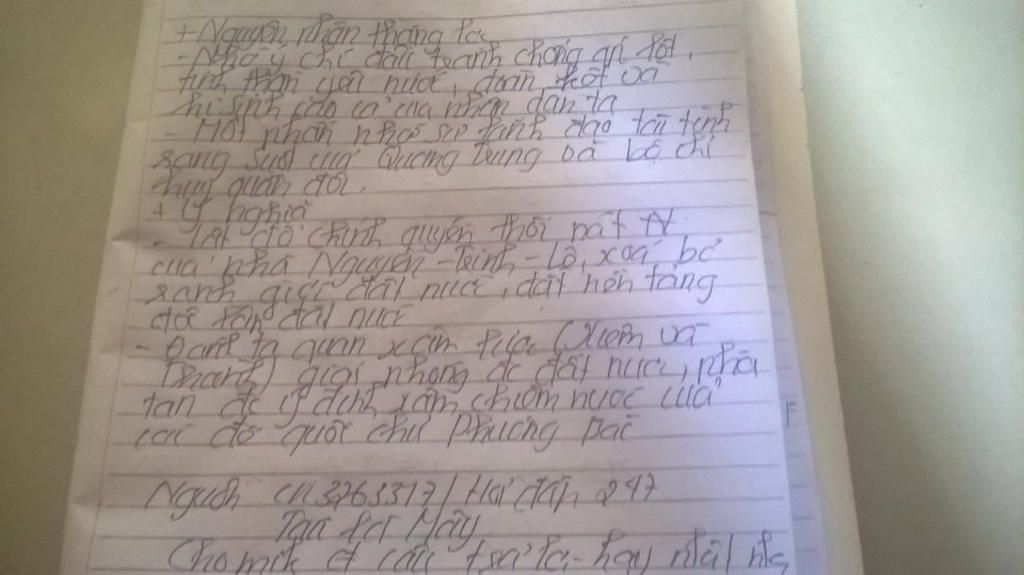 + Nguyên nhân thắng lợi
- Nhờ ý chí đấu tranh chống áp bột,
tinh thần yêu nước, đoàn kết và
hi sinh cao cả của nhân dân ta
- Một phần nhờ sự lãnh đạo tài tình
sáng suốt của Quang Trung và bộ chỉ
huy quân đội.
+ Ý nghĩa
- Lật đổ chính quyền thối nát
của nhà Nguyễn - Trịnh - Lê, xoá bỏ
ranh giới đất nước, đặt nền tảng
đất nước
- Đánh ta quân xâm lược (Xiêm và
Thanh) giải phóng đc đất nước, phá
tan đc ý định xâm chiếm nước của
các đế quốc chư phương Bắc
Nguồn 3763317 / Hỏi đáp 247
Tạo tại Mây
Cho mik ct câu trả lời hay nhất nhé